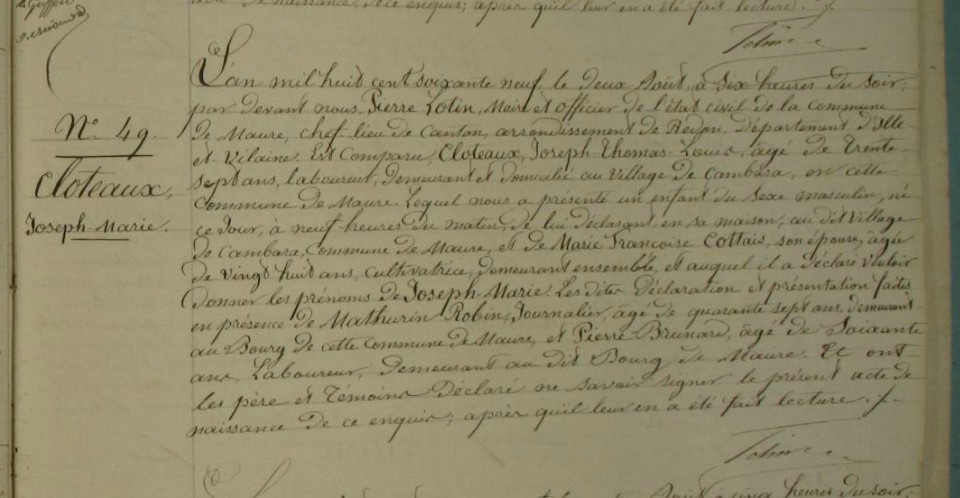 de naissance, de ce enquis; après qu'il leur en a été fait lecture. /.
L'an mil huit cent soixante neuf, le deux Août, à six heures du soir;
par devant nous, Pierre Lotin, Maire et officier de l'état civil de la commune
N° 49.
de Maure, chef-lieu de Canton, arrondissement de Redon, Département d'Ille
et-Vilaine. Est Comparu, Cloteaux, Joseph-Thomas-Louis, âgé de Trente-
Cloteaux,
sept ans, laboureur, demeurant et domicilié au Village de Cambara, en cette
commune de Maure. Lequel nous a présenté un enfant du Sexe masculin, né
Joseph-Marie.
ce Jour, à neuf heures du matin, de lui déclarant, en sa maison, au dit Village
de Cambara, commune de Maure, et de Marie Françoise Cottais, son épouse, âgée
de Vingt huit ans, cultivatrice, demeurant ensemble, et auquel il a déclaré vouloir
donner les prénoms de Joseph-Marie. Les dites Déclaration et présentation faites
en présence de Mathurin Robin, Journalier, âgé de quarante sept ans, demeurant
au Bourg de cette commune de Maure, et Pierre Brunard, âgé de Soixante
ans, Laboureur, Demeurant au dit Bourg de Maure. Et ont
les père et Témoins Déclaré ne savoir signer le présent acte de
naissance de ce enquis; après qu'il leur en a été fait lecture. /.
à cinq heures du soir;